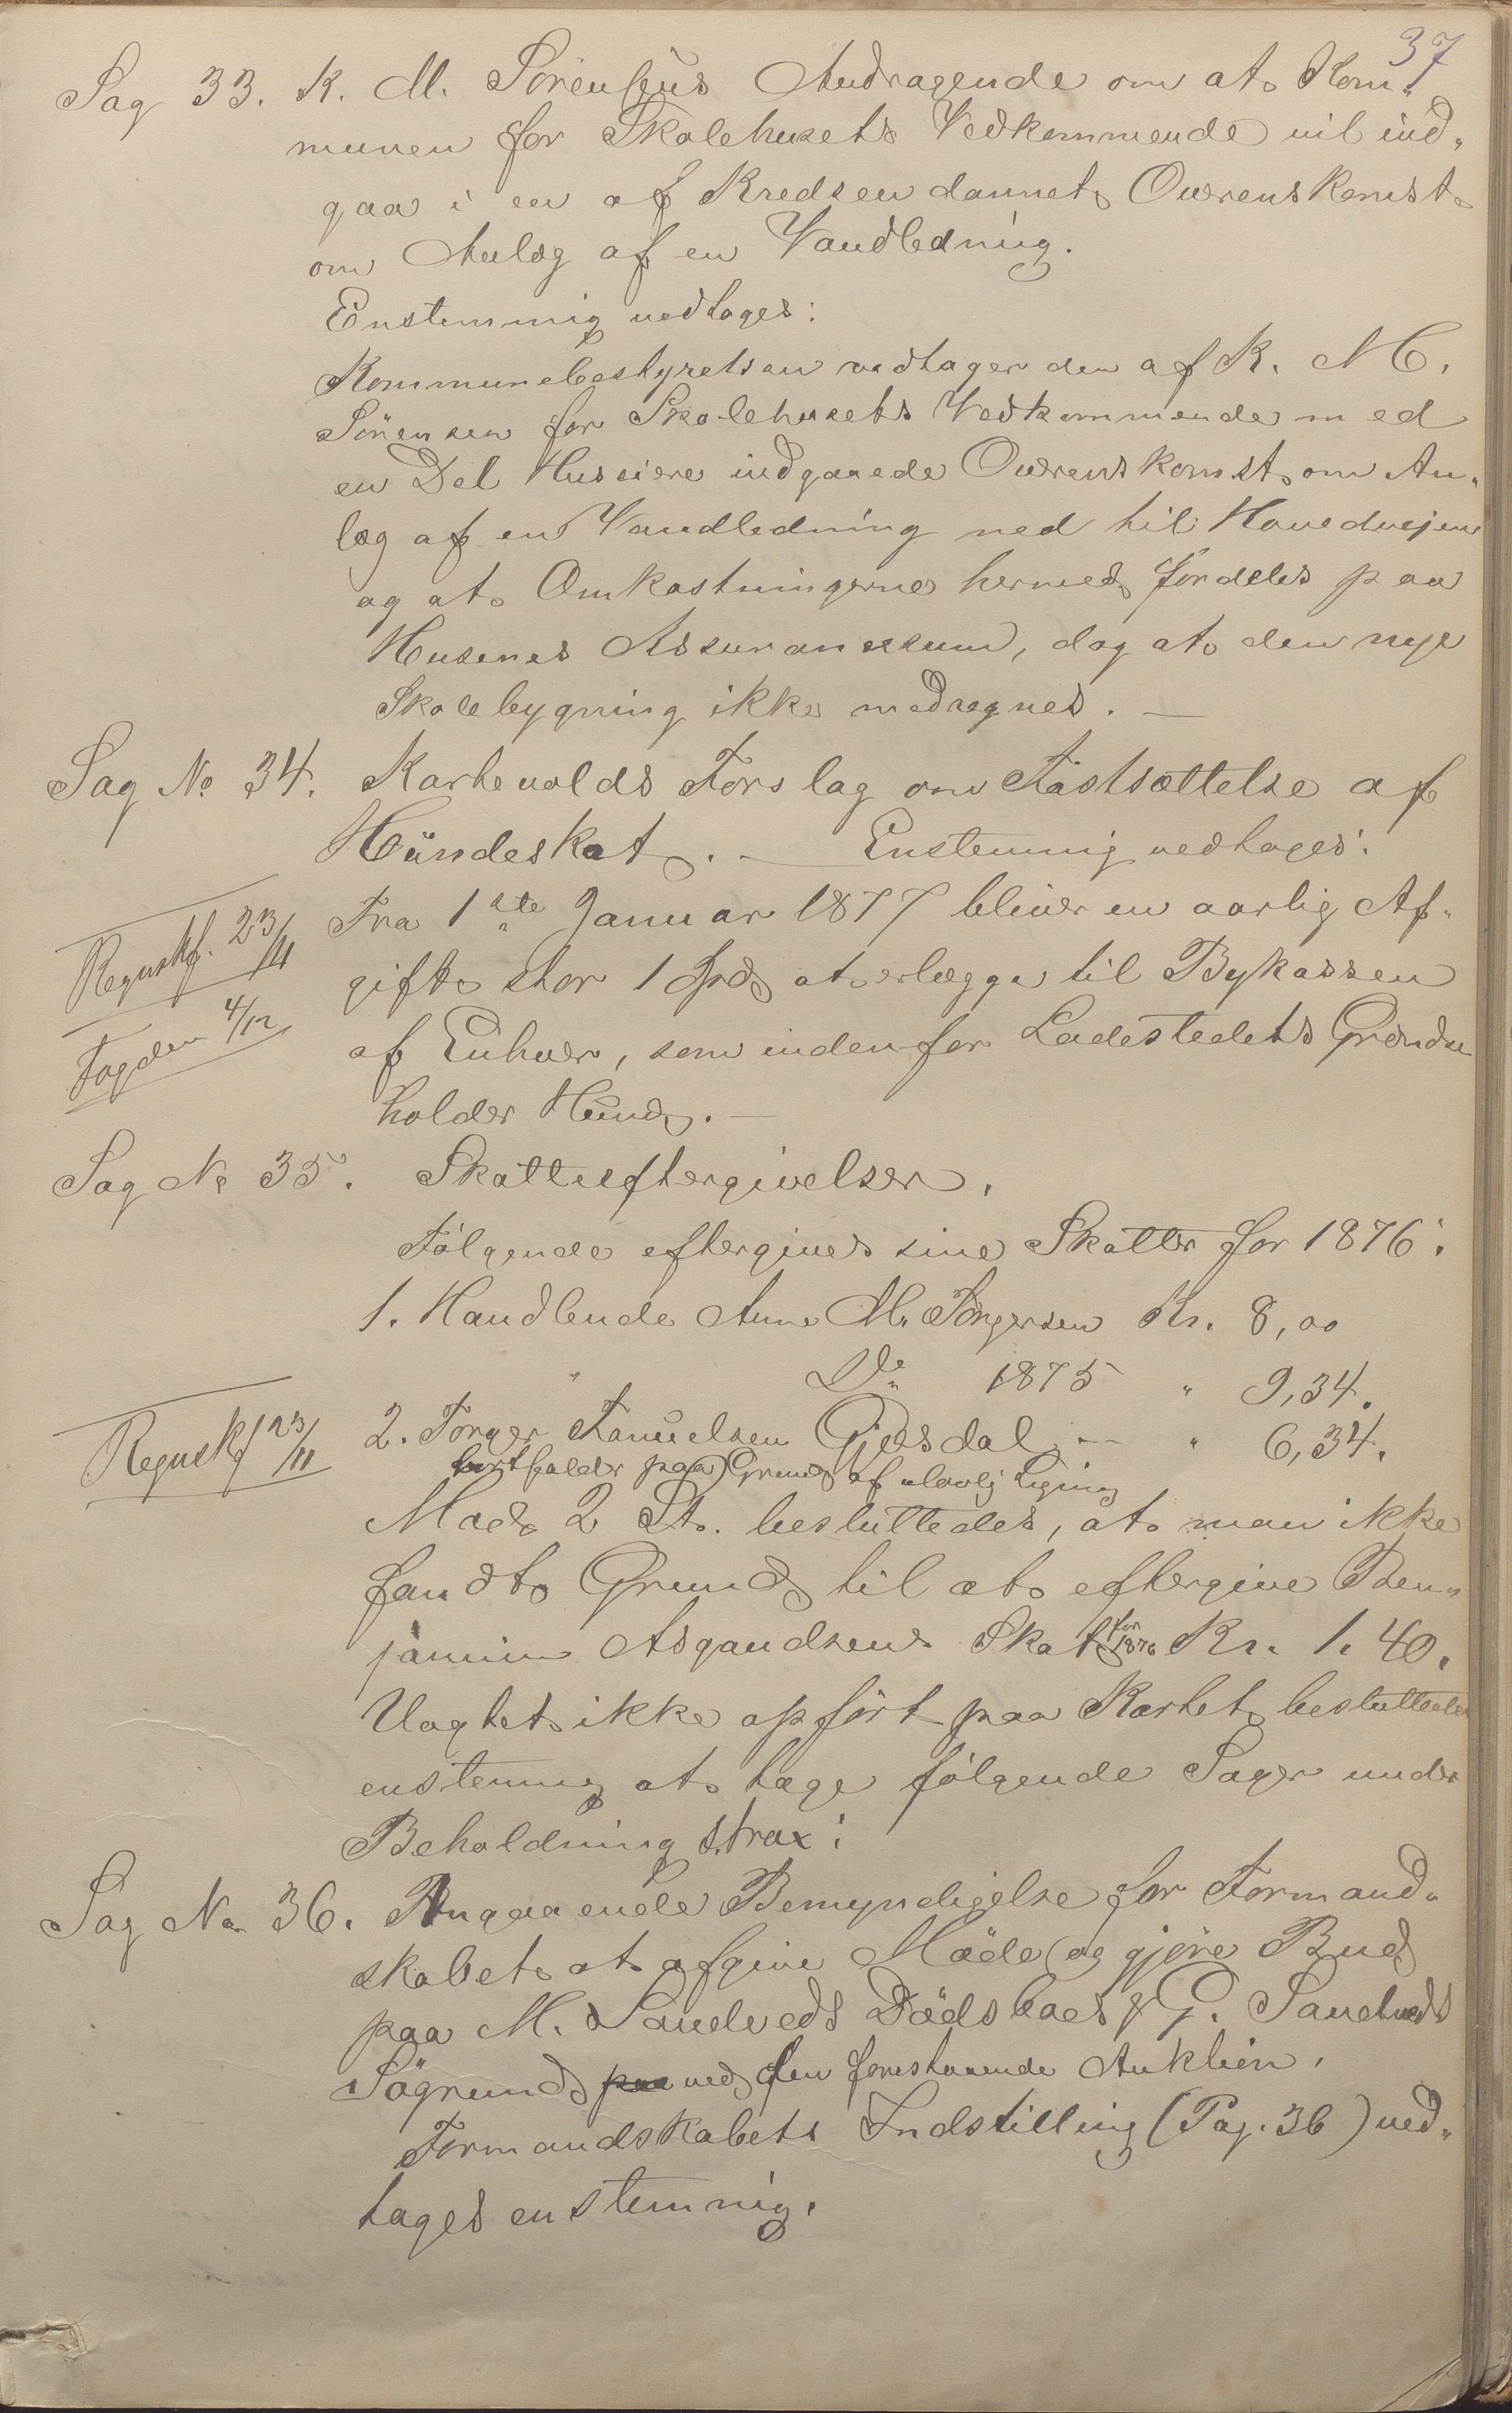 37
Sag 33. K. M. Sörensens Andragende om at Kom„
munen for Skolehusets Vedkommende vil ind„
gaa i en af Kredsen dannet Overenskomst
om Anlæg af en Vandledning.
Enstemmig vedtages:
Kommunebestyrelsen vedtager den af K. M.
Sörensen for Skolehusets Vedkommende med
en Del Huseiere indgaaede Overenskomst om An„
læg af en Vandledning ned til Hovedvejen
og at Omkostningerne hermed fordeles paa
Husenes Assurancesum, dog at den nye
Skolebygning ikke medregnes. —
Sag No 34. Kartevolds Forslag om Fastsættelse af
Hundeskat. — Enstemmig vedtages:
Regnskf. 23/11
Fogden 4/12
Fra 1ste Januar 1877 bliver en aarlig Af„
gift stor 1 Spd at erlægge til Bykassen
af Enhver, som inden for Ladestedets Grændse
holder Hund. —
Sag No 35. Skatteeftergivelser.
Følgende eftergives sine Skatter for 1876:
1. Handlende Anne M. Torgersen Kr. 8,00
" Do 1875 " 9,34.
Regnskf 23/11
2. Torger Samuelsen Gjesdal — " 6,34.
bortfalder paa Grund af ulovlig Ligning
Mod 2 St. besluttedes, at man ikke
fandt Grund til at eftergive Ben„
jamin Asgaudsens Skat for 1876 Kr. 1.40.
Uagtet ikke opført paa Kartet besluttedes
enstemmig at tage følgende Sager under
Beholdning strax:
Sag No 36. Angaaende Bemyndigelse for Formand„
skabet at afgive Möde og gjøre Bud
paa M. Sandveds Dödsboes & G. Sandveds
Sögrund paa ved den forestaaende Auktion.
Formandskabets Indstilling (Pag. 36) ved„
tages enstemmig.